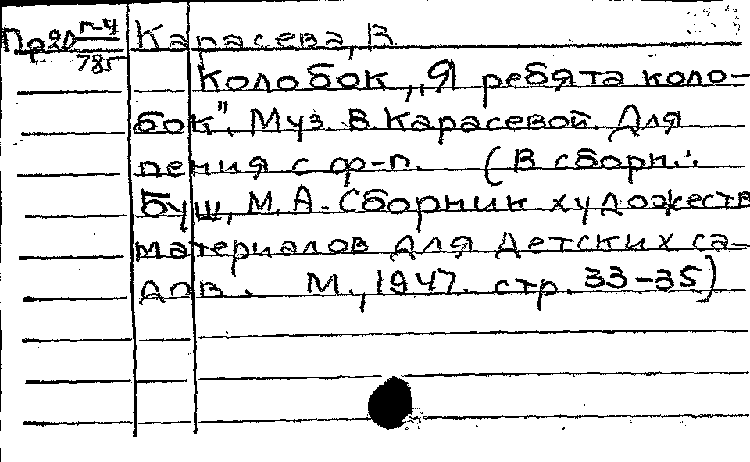 Пр20 п-4/785 Карасева, В.
Колобок, „Я ребята коло-
бок". Муз. В. Карасевой. Для
пения с ф-п. (В сборн.:
Буш, М.А. Сборник художеств
материалов для детских са-
дов. М., 1947. стр. 33-35)